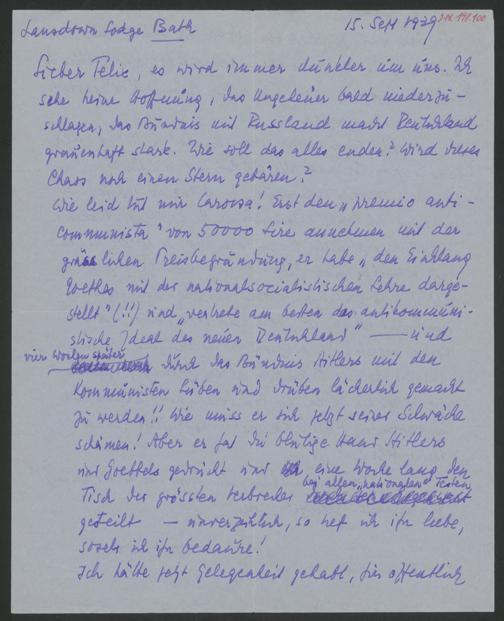 Lansdown Lodge Bath 15. Sept 1939
Lieber Felix, es wird immer dunkler um uns. Ich
sehe keine Hoffnung, das Ungeheuer bald niederzu-
schlagen, das Bündnis mit Russland macht Deutschland
grauenhaft stark. Wie soll das alles enden? Wird dieses
Chaos noch einen Stern gebären?
Wie leid tut mir Carossa! Erst den „premio anti-
communista" von 50000 Lire annehmen mit der
grässlichen Preisbegründung, er habe „den Einklang
Goethes mit der nationalsocialistischen Lehre darge-
stellt" (!!) und „vertrete am besten das antikommuni-
stische Ideal des neuen Deutschland" — und
vier Wochen später
durch das Bündnis Hitlers mit den
Kommunisten hüben und drüben lächerlich gemacht
zu werden!! Wie muss er sich jetzt seiner Schwäche
schämen! Aber er hat die blutige Hand Hitlers
und Goebbels gedrückt und eine Woche lang den
bei allen „nationalen" Festen
Tisch der grössten Verbrecher
geteilt — unverzeihlich, so tief ich ihn liebe,
sosehr ich ihn bedaure!
Ich hätte jetzt Gelegenheit gehabt, hier öffentlich